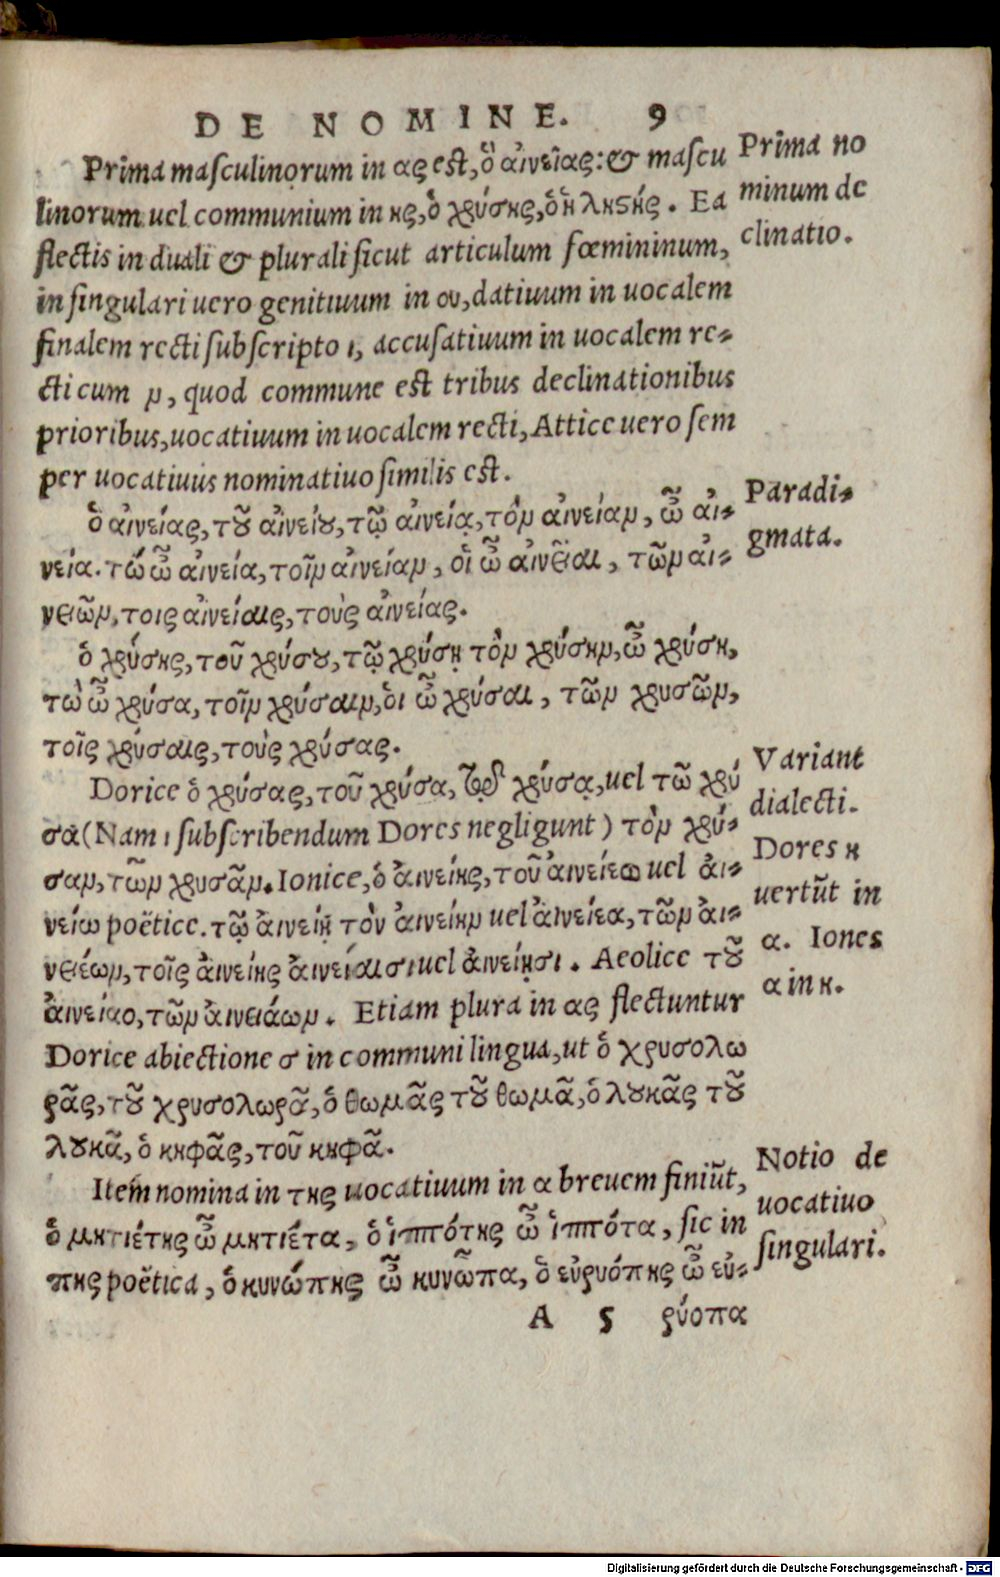 DE NOMINE. 9
Prima masculinorum in ας est, ὁ αἰνείας: & mascu
linorum uel communium in ης, ὁ χρύσης, ὁ ἡ ληϛής. Ea
flectis in duali & plurali sicut articulum fœmininum,
in singulari uero genitiuum in ου, datiuum in uocalem
finalem recti subscripto ι, accusatiuum in uocalem re-
cti cum ν, quod commune est tribus declinationibus
prioribus, uocatiuum in uocalem recti, Attice uero sem
per uocatiuus nominatiuo similis est.
ὁ αἰνείας, τοῦ αἰνείου, τῷ αἰνείᾳ, τὸν αἰνείαν, ὦ αἰ-
νεία. τώ ὦ αἰνεία, τοῖν αἰνείαιν, οἱ ὦ αἰνεῖαι, τῶν αἰ-
νειῶν, τοις αἰνείαις, τοὺς αἰνείας.
ὁ χρύσης, τοῦ χρύσου, τῷ χρύσῃ τὸν χρύσην, ὦ χρύση,
τὼ ὦ χρύσα, τοῖν χρύσαιν, ὁι ὦ χρύσαι, τῶν χρυσῶν,
τοῖς χρύσαις, τοὺς χρύσας.
Dorice ὁ χρύσας, τοῦ χρύσα, τῷ χρύσᾳ, uel τῶ χρύ
σα (Nam ι subscribendum Dores negligunt) τὸν χρύ-
σαν, τῶν χρυσᾶν. Ionice, ὁ ἀινείης, τοῦ ἀινείεω uel ἀι-
νείω poëtice. τῷ ἀινείῃ τὸν ἀινείην uel ἀινείεα, τῶν ἀι-
νειέων, τοῖς ἀινείης ἀινείαισι uel ἀινείῃσι. Aeolice τοῦ
ἀινείαο, τῶν ἀινειάων. Etiam plura in ας flectuntur
Dorice abiectione σ in communi lingua, ut ὁ χρυσολω
ρᾶς, τοῦ χρυσολωρᾶ, ὁ θωμᾶς τοῦ θωμᾶ, ὁ λουκᾶς τοῦ
λουκᾶ, ὁ κηφᾶς, τοῦ κηφᾶ.
Item nomina in της uocatiuum in α breuem finiũt,
ὁ μητιέτης ὦ μητιέτα, ὁ ἱππότης ὦ ἱππότα, sic in
πης poëtica, ὁ κυνώπης ὦ κυνῶπα, ὁ εὐρυόπης ὦ εὐ-
A 5 ρύοπα
Prima no
minum de
clinatio.
Paradi-
gmata.
Variant
dialecti.
Dores η
uertũt in
α. Iones
α in η.
Notio de
uocatiuo
singulari.
Digitalisierung gefördert durch die Deutsche Forschungsgemeinschaft - DFG